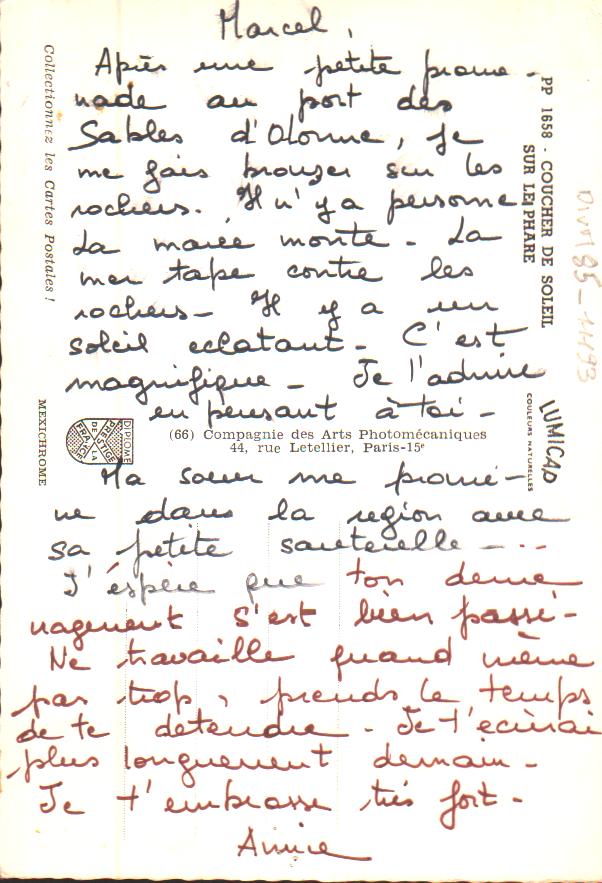 Marcel,
Après une petite prome-
nade au port des
Sables d'Olonne, je
me fais bronzer sur les
rochers. Il n'y a personne
La marée monte - La
mer tape contre les
rochers - Il y a un
soleil eclatant - C'est
magnifique - Je l'admire
en pensant à toi -
Ma soeur me promè-
ne dans la region avec
sa petite sauterelle - ...
J'éspère que ton deme
nagement s'est bien passé -
Ne travaille quand même
pas trop, prends le temps
de te detendre - Je t'ecirai
plus longuement demain -
Je t'embrasse très fort -
Annie
Collectionnez les Cartes Postales !
MEXICHROME
DIPLOME
PRESTIGE
DE LA
FRANCE
(66) Compagnie des Arts Photomécaniques
44, rue Letellier, Paris-15e
PP 1658 - COUCHER DE SOLEIL
SUR LE PHARE
LUMICAP
COULEURS NATURELLES